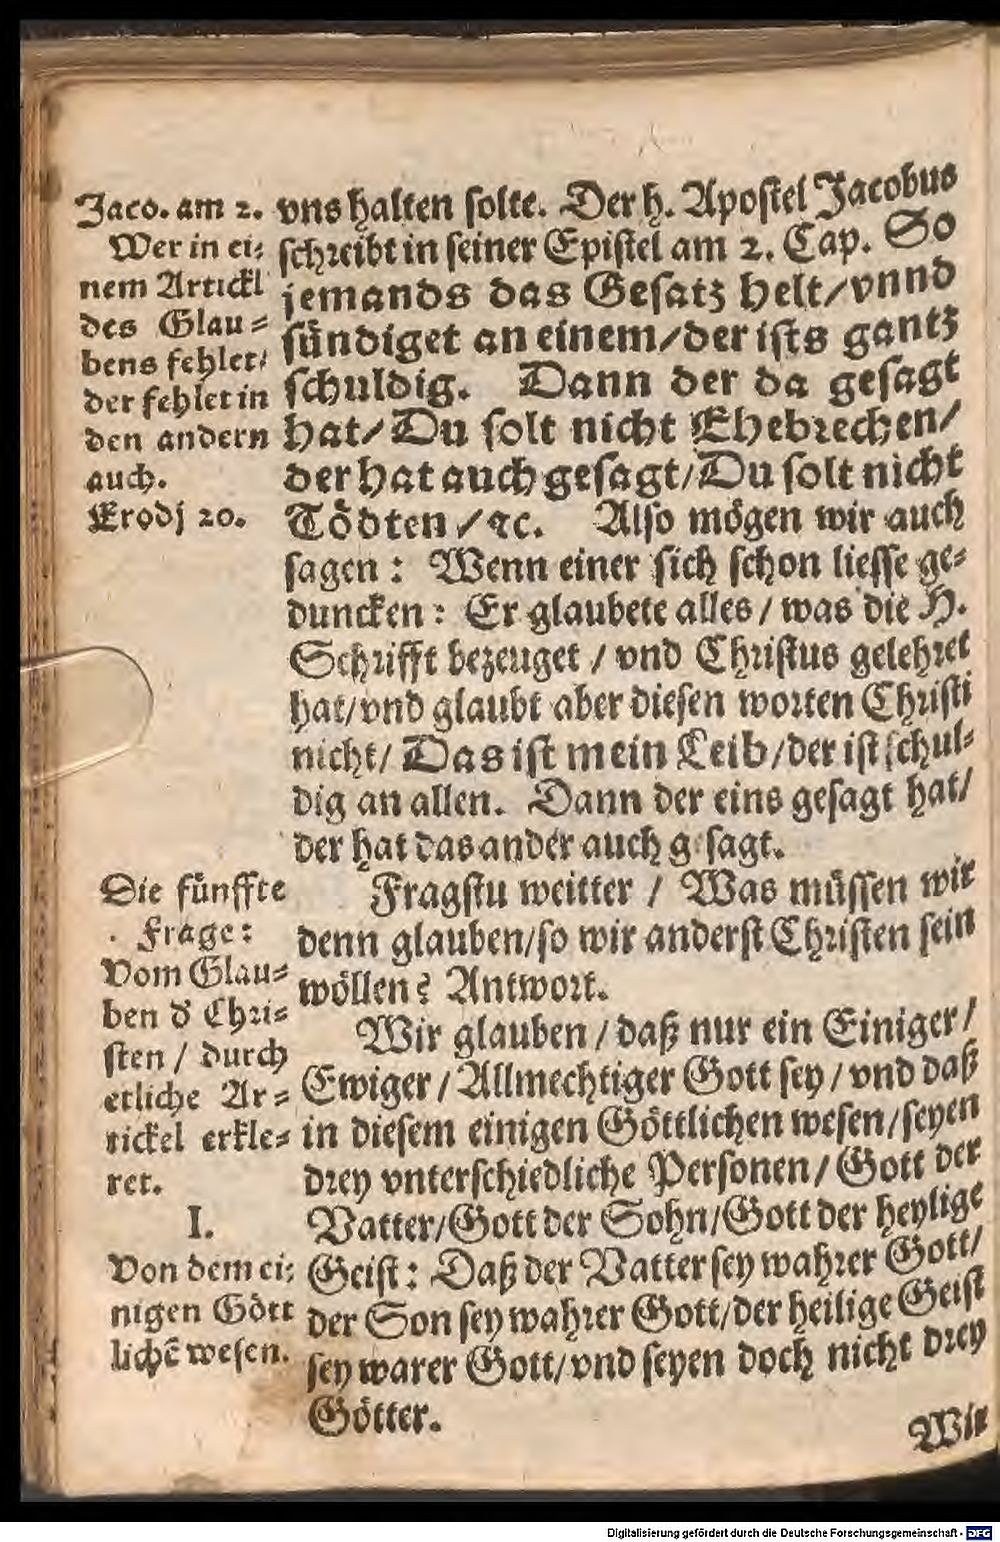 Jaco. am 2.
Wer in ei⸗
nem Artickl
des Glau⸗
bens fehlet/
der fehlet in
den andern
auch.
Exodj 20.
vns halten solte. Der h. Apostel Jacobus
schreibt in seiner Epistel am 2. Cap. So
jemands das Gesatz helt/vnnd
sündiget an einem/der ists gantz
schuldig. Dann der da gesagt
hat/Du solt nicht Ehebrechen/
der hat auch gesagt/Du solt nicht
Tödten/ꝛc. Also mögen wir auch
sagen: Wenn einer sich schon liesse ge⸗
duncken: Er glaubete alles/was die H.
Schrifft bezeuget/vnd Christus gelehret
hat/vnd glaubt aber diesen worten Christi
nicht/Das ist mein Leib/der ist schul⸗
dig an allen. Dann der eins gesagt hat/
der hat das ander auch gesagt.
Die fünffte
Frage:
Vom Glau⸗
ben d' Chri⸗
sten/durch
etliche Ar⸗
tickel erkle⸗
ret.
I.
Von dem ei⸗
nigen Gött
lichē wesen.
Fragstu weitter/Was müssen wir
denn glauben/so wir anderst Christen sein
wöllen? Antwort.
Wir glauben/daß nur ein Einiger/
Ewiger/Allmechtiger Gott sey/vnd daß
in diesem einigen Göttlichen wesen/seyen
drey vnterschiedliche Personen/Gott der
Vatter/Gott der Sohn/Gott der heylige
Geist: Daß der Vatter sey wahrer Gott/
der Son sey wahrer Gott/der heilige Geist
sey warer Gott/vnd seyen doch nicht drey
Götter.
Wir
Digitalisierung gefördert durch die Deutsche Forschungsgemeinschaft - DFG